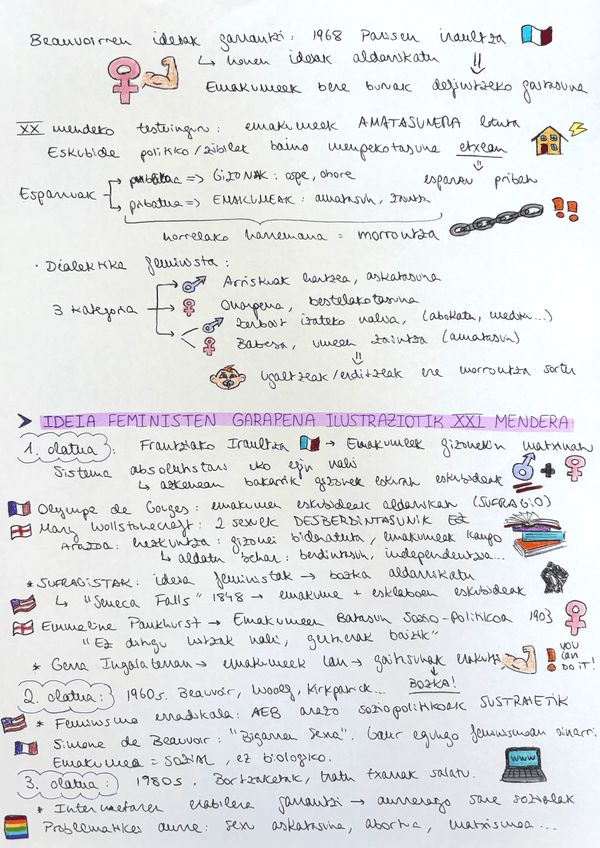 Beauvoirren ideiak garrantzi: 1968 Parisen iraultza
↳ honen ideiak aldarrikatu
Emakumeek bere buruak definitzeko gaitasuna
XX mendeko testuinguru: emakumeek AMATASUNERA lotuta
Eskubide politiko/zibilak baino menpekotasuna etxean
esparru pribatu
Esparruak publikoa => GIZONAK: aspe, ohore
pribatua => EMAKUMEAK: amatasun, zaintza
horrelako harremana = morrontza
· Dialektika feminista:
3 kategoria
Arriskuak hartzea, askatasuna
Onarpena, bestelakotasuna
Zerbait izateko nahia, (abokatu, mediku...)
Babesa, umeen zaintza (amatasun)
Ugaltzeak/erditzeak ere morrontza sortu
➤ IDEIA FEMINISTEN GARAPENA ILUSTRAZIOTIK XXI MENDERA
1. olatua: Frantziako Iraultza → Emakumeek gizonekin matxinatu
Sistema absolutista uko egin nahi
↳ azkenean bakarrik gizonek lortu eskubideak
Olympe de Gouges: emakumeen eskubideak aldarrikatu (SUFRAGIO)
Mary Wollstonecraft: 2 sexuek DESBERDINTASUNIK EZ
Arazoa: hezkuntza: gizonei bideratuta, emakumeek kanpo
↳ aldatu behar: berdintasun, independentzia...
* SUFRAGISTAK: ideia feministak → bozka aldarrikatu
↳ "Seneca Falls" 1848 → emakume + esklaboen eskubideak
Emmeline Pankhurst → Emakumeen Batasun Sozio-Politikoa 1903
"Ez ditugu hitzak nahi, gertaerak baizik"
* Gerra Ingalaterran → emakumeek lan → gaitasunak erakutsi
YOU CAN DO IT!
BOZKA!
2. olatua: 1960s. Beauvoir, Woolf, Kirkpatrick...
* Feminismo erradikala: AEB arazo soziopolitikoak SUSTRAIETIK
Simone de Beauvoir: "Bigarren Sexua". Gaur egungo feminismoan oinarri.
Emakumea = SOZIAL, ez biologiko.
3. olatua: 1980s. Bortxaketak, tratu txarrak salatu.
WWW
* Interneten erabilera garrantzi → aurrerago sare sozialak
Problematikes aurre: sexu askatasuna, abortua, matxismoa...